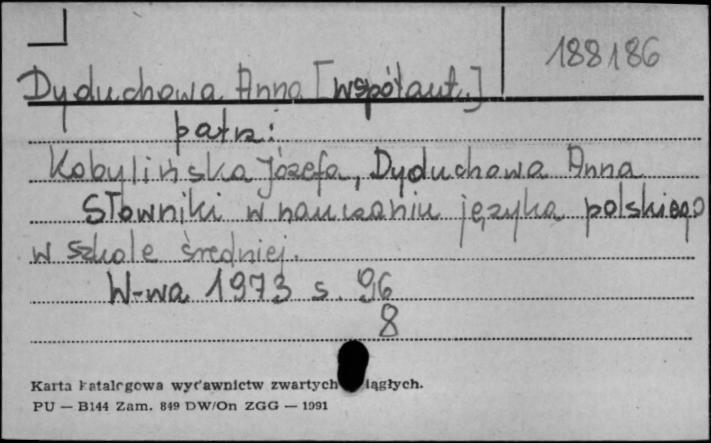 188186
Dyduchowa Anna [współaut.]
patrz:
Kobylińska Józefa, Dyduchowa Anna
Słowniki w nauczaniu języka polskiego
w szkole średniej.
W-wa 1973 s. 96
8
Karta katalogowa wydawnictw zwartych iągłych.
PU — B144 Zam. 849 DW/On ZGG — 1991